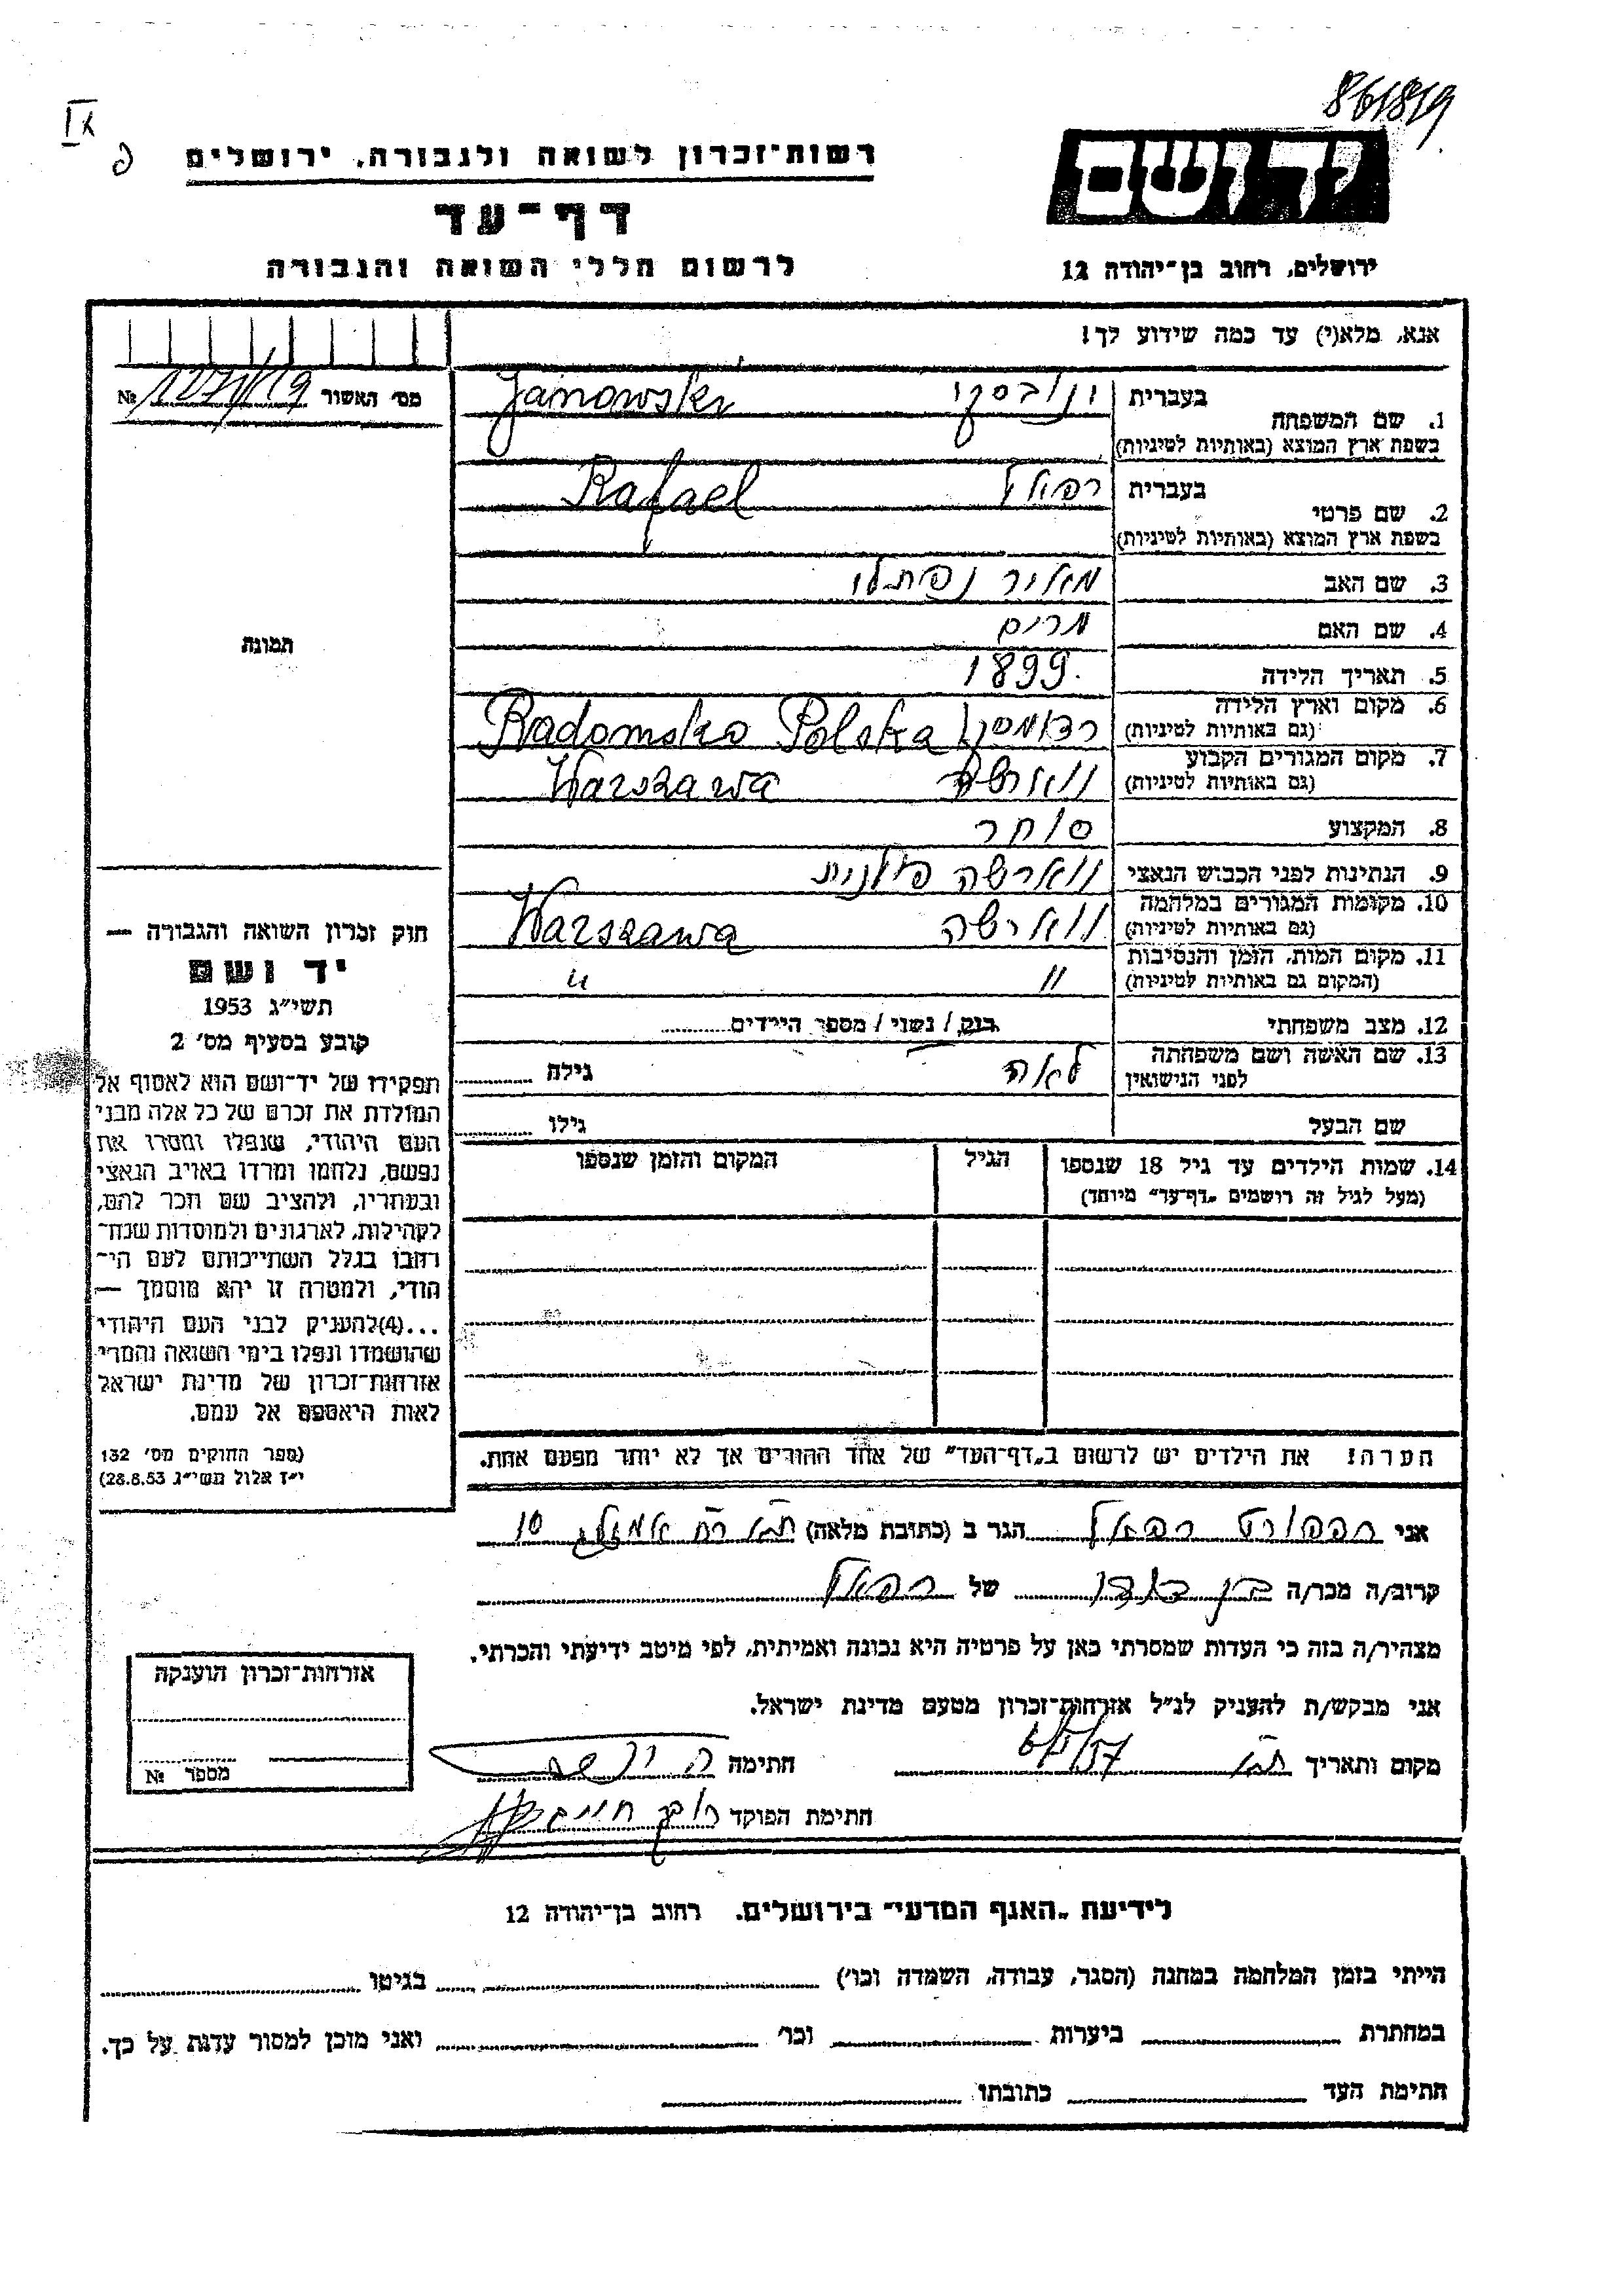 861819
IX
רשות־זכרון לשואה ולגבורה, ירושלים
יד ושם
דף־עד
לרשום חללי השואה והגבורה
ירושלים, רחוב בן־יהודה 12
אנא, מלא(י) עד כמה שידוע לך!
מס׳ האשור №
1. שם המשפחה
בעברית ינובסקי Janowski
בשפת ארץ המוצא (באותיות לטיניות)
2. שם פרטי
בעברית רפאל Rafael
בשפת ארץ המוצא (באותיות לטיניות)
3. שם האב מאיר נפתלי
4. שם האם מרים
5. תאריך הלידה 1899
6. מקום וארץ הלידה
(גם באותיות לטיניות) רדומסק Radomsko Polska
7. מקום המגורים הקבוע
(גם באותיות לטיניות) ווארשה Warszawa
8. המקצוע סוחר
9. הנתינות לפני הכבוש הנאצי ווארשה פולנית
10. מקומות המגורים במלחמה
(גם באותיות לטיניות) ווארשה Warszawa
11. מקום המות, הזמן והנסיבות
(המקום גם באותיות לטיניות) " "
12. מצב משפחתי רווק / נשוי / מספר הילדים
13. שם האשה ושם משפחתה
לפני הנישואין לאה גילה
שם הבעל גילו
14. שמות הילדים עד גיל 18 שנספו הגיל המקום והזמן שנספו
(מעל לגיל זה רושמים „דף־עד״ מיוחד)
הערה! את הילדים יש לרשום ב„דף־העד״ של אחד ההורים אך לא יותר מפעם אחת.
תמונה
חוק זכרון השואה והגבורה —
יד ושם
תשי״ג 1953
קובע בסעיף מס׳ 2
תפקידו של יד־ושם הוא לאסוף אל
המולדת את זכרם של כל אלה מבני
העם היהודי, שנפלו ומסרו את
נפשם, נלחמו ומרדו באויב הנאצי
ובעוזריו, ולהציב שם וזכר להם,
לקהילות, לארגונים ולמוסדות שנח־
רבו בגלל השתייכותם לעם הי־
הודי, ולמטרה זו יהא מוסמך —
...(4)להעניק לבני העם היהודי
שהושמדו ונפלו בימי השואה והמרי
אזרחות־זכרון של מדינת ישראל
לאות היאספם אל עמם.
(ספר החוקים מס׳ 132
י״ז אלול תשי״ג 28.8.53)
אני רפפורט רפאל הגר ב (כתובת מלאה) 10
קרוב/ה מכר/ה בן דודו של רפאל
מצהיר/ה בזה כי העדות שמסרתי כאן על פרטיה היא נכונה ואמיתית, לפי מיטב ידיעתי והכרתי.
אני מבקש/ת להעניק לנ״ל אזרחות־זכרון מטעם מדינת ישראל.
מקום ותאריך ת״א חתימה
חתימת הפוקד
אזרחות־זכרון הוענקה
מספר №
לידיעת „האגף המדעי״ בירושלים. רחוב בן־יהודה 12
הייתי בזמן המלחמה במחנה (הסגר, עבודה, השמדה וכו׳) בגיטו
במחתרת ביערות וכו׳ ואני מוכן למסור עדות על כך.
חתימת העד כתובתו